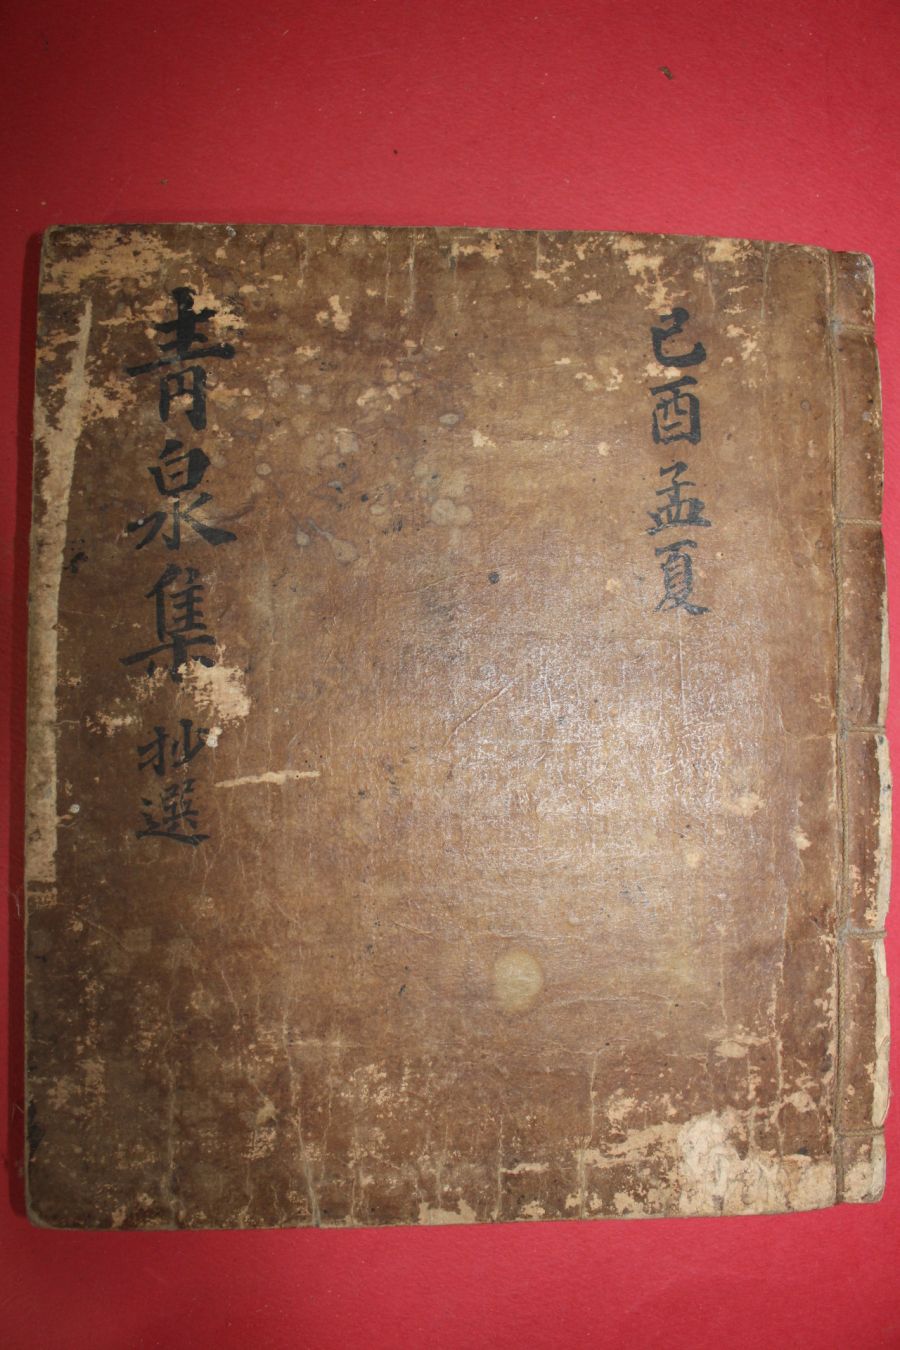 己酉孟夏
靑泉集 抄選